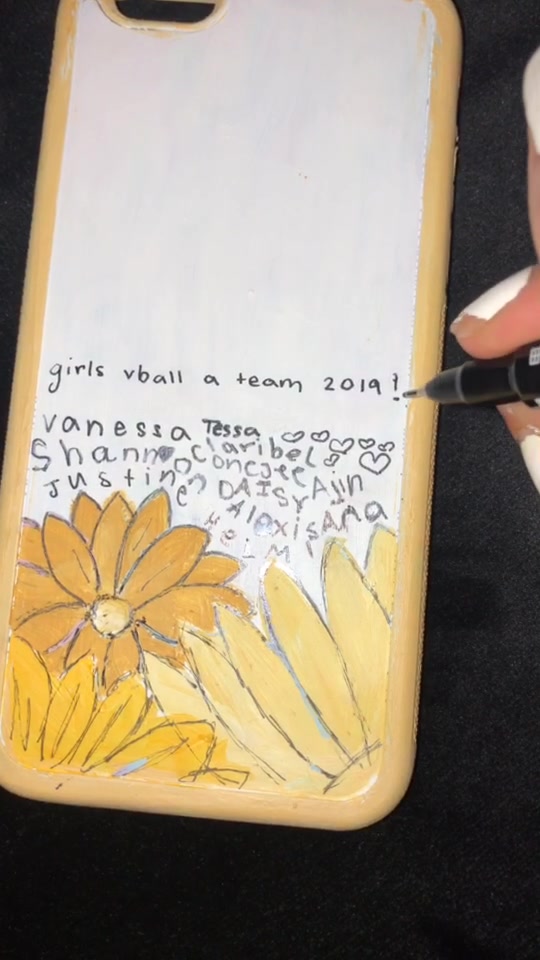 girls vball a team 2019!
vanessa Tessa
Shannon Claribel
Justine DAISY Ajin
Alexis ANA